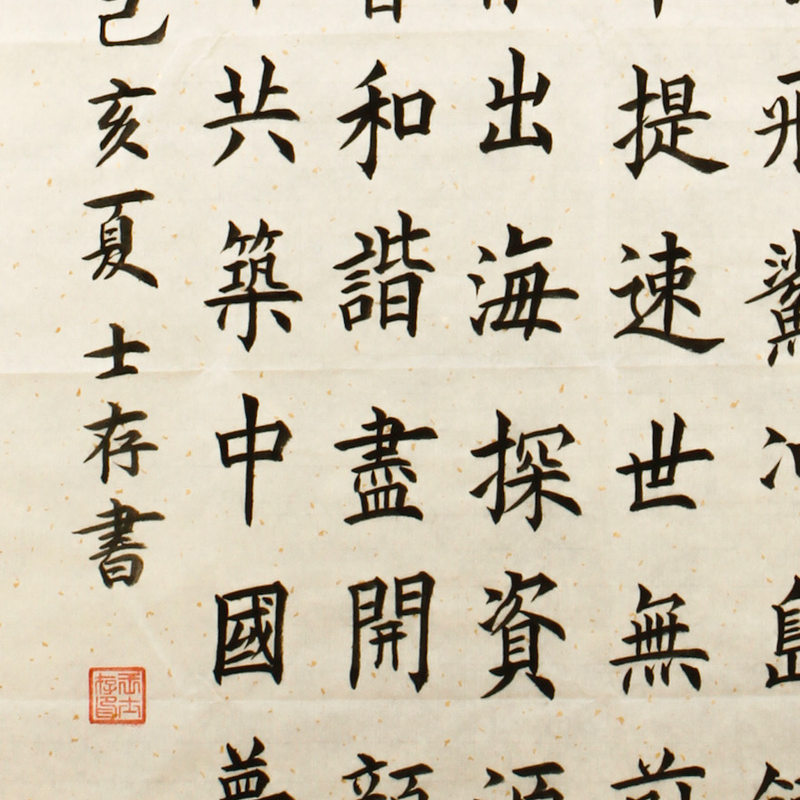 提速世無前
出海探資源
和諧盡開顏
共築中國夢
己亥夏士存書